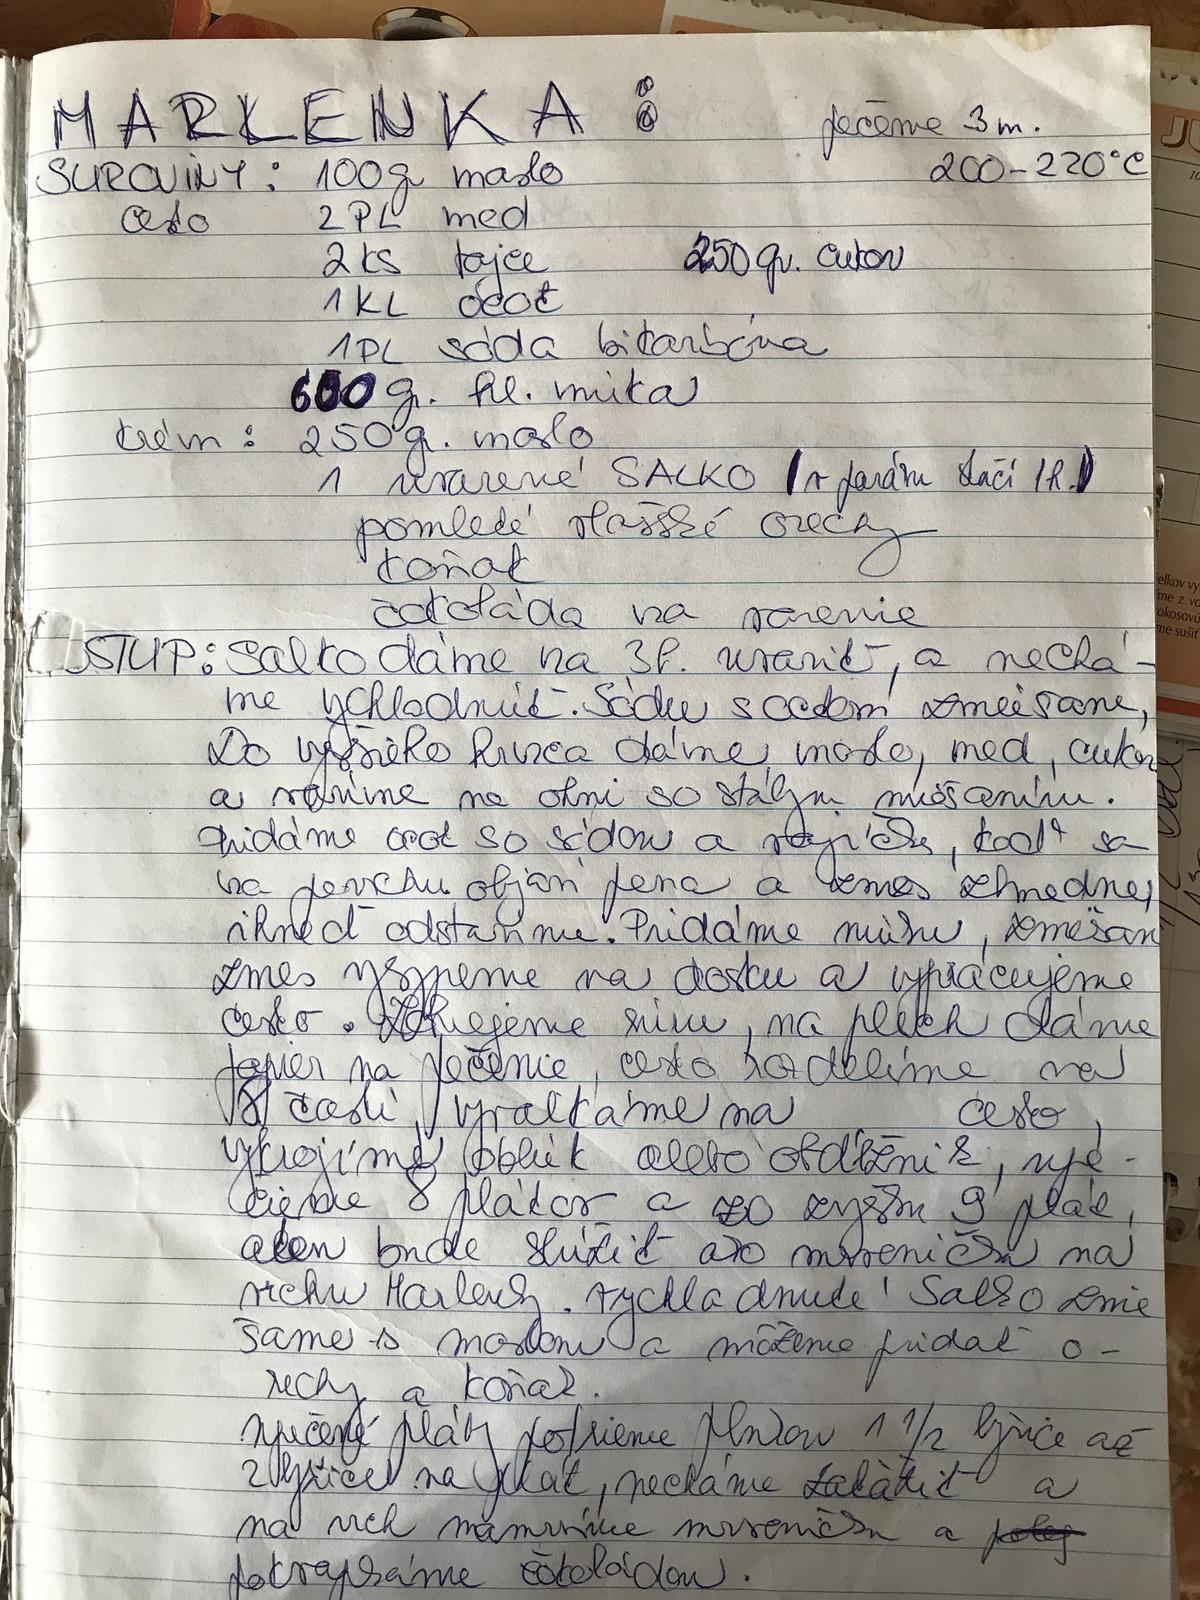 MARLENKA :
pečeme 3 m.
200-220°C
SUROVINY : 100g maslo
cesto 2PL med
2ks vajce 250 gr. cukor
1KL ocot
1PL sóda bikarbóna
600 g. hl. múka
krém : 250g. maslo
1 uvarené SALKO (v parám stačí 1h.)
pomleté vlašské orechy
koňak
čokoláda na varenie
STUP: Salko dáme na 3h. uvariť, a nechá-
me vychladnúť. Sódu s octom zmiešame,
Do vyššieho hrnca dáme maslo, med, cukor
a varíme na ohni so stálym miešaním.
Pridáme ocot so sódou a vajíčka, keď sa
na povrchu objaví pena a zmes zhnedne,
ihneď odstavíme. Pridáme múku, zmešan
zmes vysypeme na dosku a vypracujeme
cesto. múku, na plech dáme
papier na pečenie, cesto rozdelíme na
8 častí, vyvalkáme na cesto,
vykrojíme oblúk alebo obdĺžnik, upe-
čieme 8 plátov a zo zvyšku 9 plát,
bude slúžiť ako mrvenička na
vrchu Marlenky. Vychladnuté Salko zmie
šame s maslom a môžeme pridať o-
rechy a koňak.
Upečené pláty potrieme plnkou 1 1/2 lyžice až
2 lyžice na plát, necháme zaťažiť a
na vrch mrveničku a
pokvapkáme čokoládou.